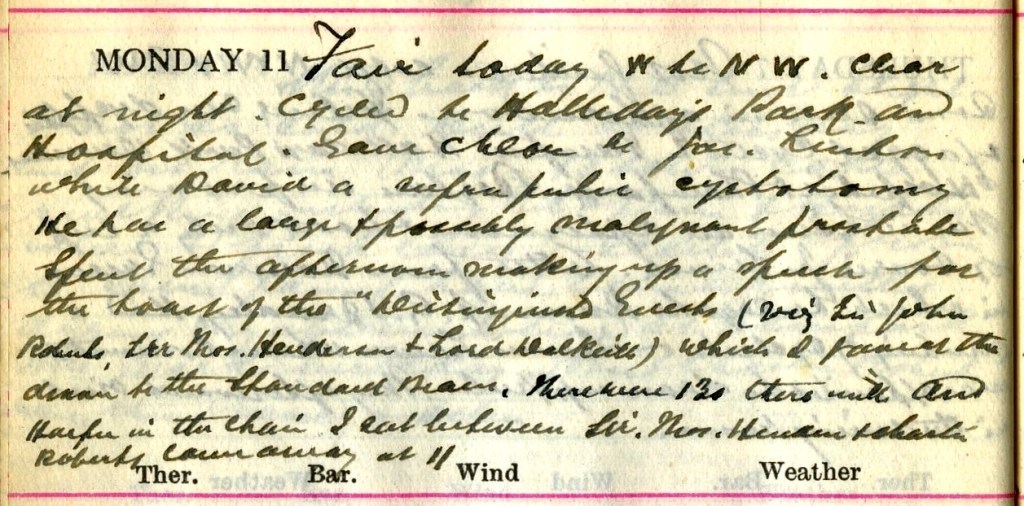 MONDAY 11 Fair today W to N W. clear
at night. Cycled to Halliday's Park and
Hospital. Gave Chlor to Jas.
while David a supra pubic cystotomy
He has a large & possibly malignant prostate
Spent the afternoon making up a speech for
the toast of the "Distinguished Guests (viz Sir John
Roberts, Sir Thos. Henderson & Lord Dalkeith) which I gave at the
dinner to the Standard Bearer. There were 130 there with And
Harper in the chair I sat between Sir. Thos. Henderson & Charlie
Roberts, came away at 11
Ther. Bar. Wind Weather